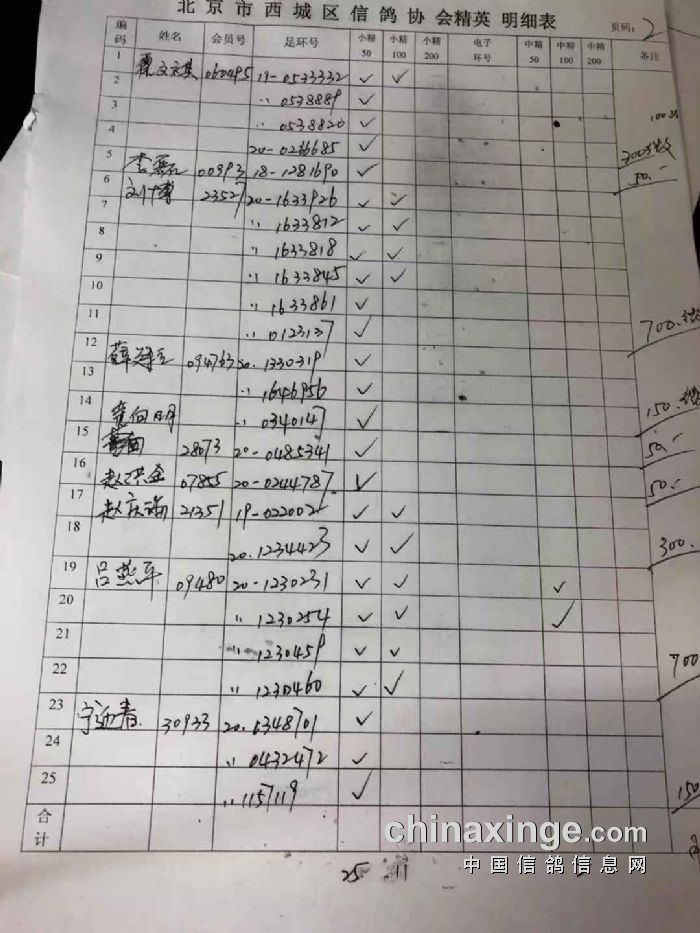 北京市西城区信鸽协会精英 明细表
页码: 2
编码 姓名 会员号 足环号 小精50 小精100 小精200 电子环号 中精50 中精100 中精200 备注
1 060495 19-0533332 ✓ ✓
2 〃 0538889 ✓
3 〃 0538820 ✓
4 20-0266685 ✓
5 18-1281690 ✓ 50.-
6 刘博 23527 20-1633926 ✓ ✓
7 〃 1633812 ✓ ✓
8 〃 1633818 ✓ ✓
9 〃 1633845 ✓ ✓
10 〃 1633861 ✓
11 〃 0123137 ✓ 700.
12 094763 20.1330319 ✓
13 〃 1646956 ✓
14 〃 0340147 ✓ 150.
15 28073 20-0485341 ✓ 50.-
16 赵洪金 07855 20-0244787 ✓ 50.-
17 21351 19-022002 ✓ ✓
18 20.1234423 ✓ ✓ 300.
19 吕燕平 09480 20-1230231 ✓ ✓ ✓
20 〃 1230254 ✓ ✓ ✓
21 〃 1230459 ✓ ✓
22 〃 1230460 ✓ ✓ 700
23 宁迎春 30933 20.0348701 ✓
24 〃 0432472 ✓
25 〃 1157119 ✓ 150
合计
25 11
chinaxinge.com
中国信鸽信息网